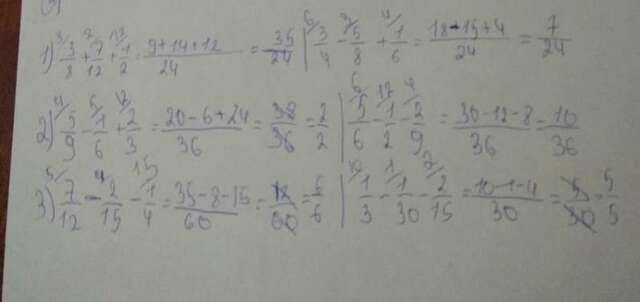 1) 3/ 3/8 + 2/ 7/12 + 12/ 1/2 = 9+14+12/24 = 35/24 | 6/ 3/4 - 3/ 5/8 + 4/ 1/6 = 18-15+4/24 = 7/24
2) 4/ 5/9 - 6/ 1/6 + 12/ 2/3 = 20-6+24/36 = 38/36 = 2/2 | 6/ 5/6 - 12/ 1/2 - 4/ 2/9 = 30-12-8/36 = 10/36
3) 5/ 7/12 - 4/ 2/15 - 15/ 1/4 = 35-8-15/60 = 12/60 = 6/6 | 10/ 1/3 - 1/ 1/30 - 2/ 2/15 = 10-1-4/30 = 5/30 = 5/5